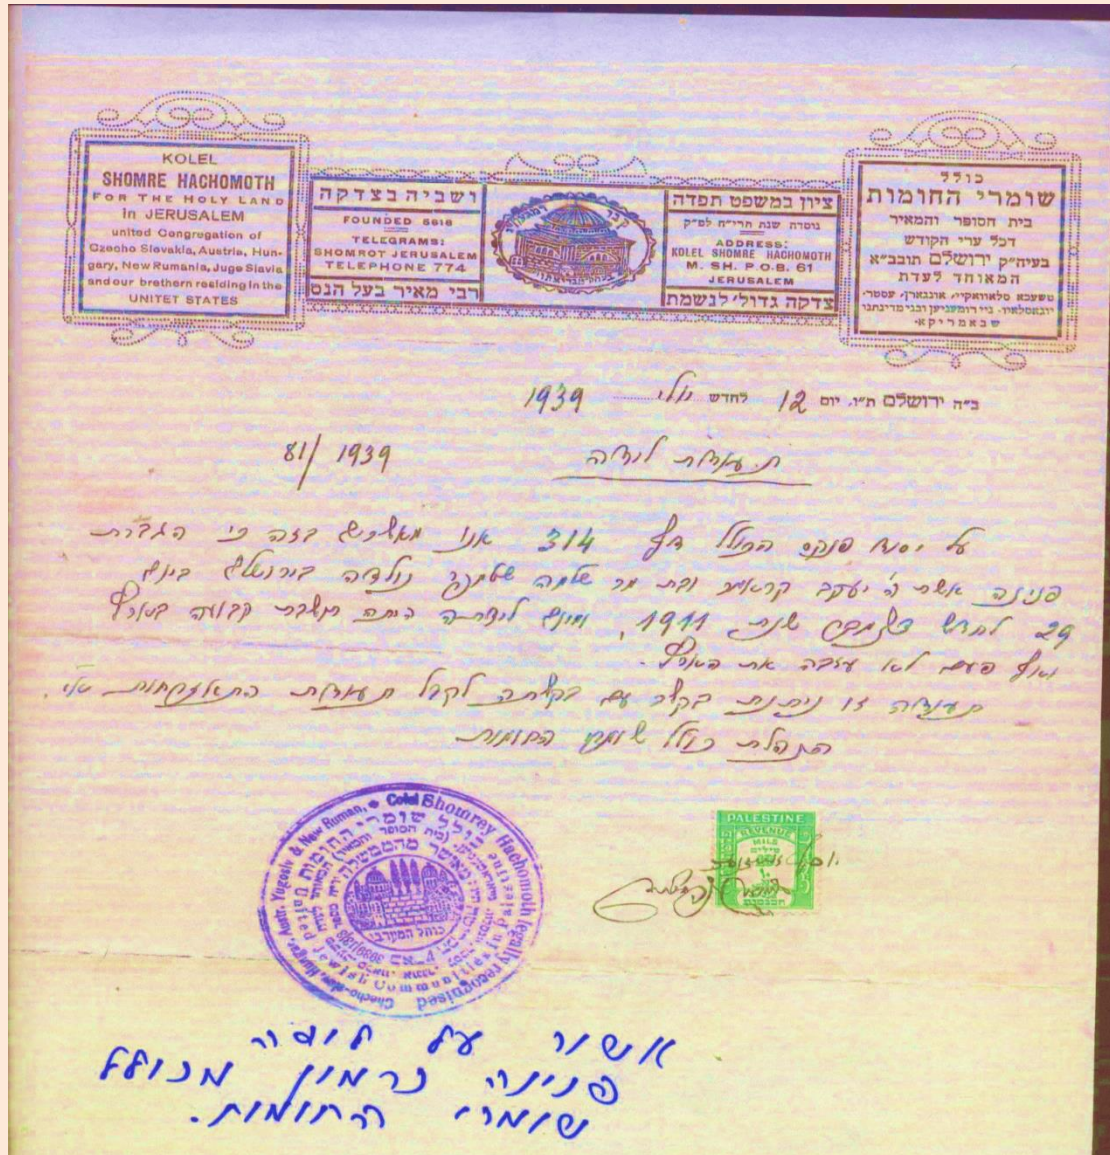 KOLEL
SHOMRE HACHOMOTH
FOR THE HOLY LAND
in JERUSALEM
united Congregation of
Czecho Slovakia, Austria, Hun-
gary, New Rumania, Jugo Slavia
and our brethern residing in the
UNITET STATES
ושביה בצדקה
FOUNDED 5618
TELEGRAMS:
SHOMROT JERUSALEM
TELEPHONE 774
רבי מאיר בעל הנס
ציון במשפט תפדה
נוסדה שנת תרי״ח לפ״ק
ADDRESS:
KOLEL SHOMRE HACHOMOTH
M. SH. P.O.B. 61
JERUSALEM
צדקה גדולי לנשמת
כולל
שומרי החומות
בית הסופר והמאיר
דכל ערי הקודש
בעיה״ק ירושלם תובב״א
המאוחד לעדת
שבאמריקא.
ב״ה ירושלם ת״ו, יום 12 לחדש יולי 1939
תעודת לידה 81/1939
על יסוד פנקס הכולל דף 314 אנו מאשרים בזה כי הגברת
פנינה אשת ה׳ יעקב קראוס ובת מר שלמה נולדה בירושלים ביום
29 לחדש דצמבר שנת 1911, ומיום לידתה היתה תושבת קבועה בארץ
ואף פעם לא עזבה את הארץ.
תעודה זו ניתנת בקשר עם בקשתה לקבל תעודת התאזרחות
הנהלת כולל שומרי החומות
Colel Shomrey Hachomoth legally recognised
כולל שומרי החומות
כותל המערבי
PALESTINE
REVENUE
MILS
אשור על לידה
פנינה כרמון מכולל
שומרי החומות.